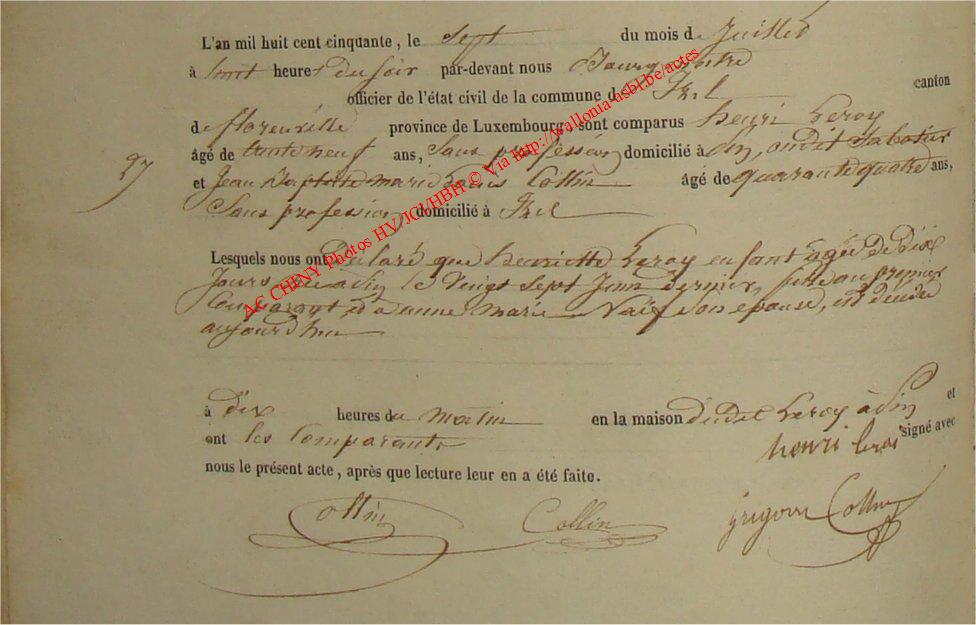 L'an mil huit cent cinquante, le sept du mois de Juillet
à huit heures du soir par-devant nous Bourgmestre
officier de l'état civil de la commune d'Izel canton
de florenville province de Luxembourg, sont comparus henri Leroy
âgé de trente neuf ans, Sans profession domicilié à
27
et Jean Baptiste marie Collin âgé de quarante quatre ans,
Sans profession domicilié à Izel
Lesquels nous ont Déclaré que henriette Leroy enfant agée de dix
Jours née à Pin le Vingt Sept Juin dernier, fille du premier
Comparant et d'anne marie Naïf son epouse, est décédée
aujourd'hui
à dix heures du matin en la maison dudit Leroy à Pin et
ont les Comparants signé avec
nous le présent acte, après que lecture leur en a été faite.
henri leroi
Collin Collin grégoire Collin
AC CHINY Photos HV/JCl/HBH © Via http://wallonia-asbl.be/actes